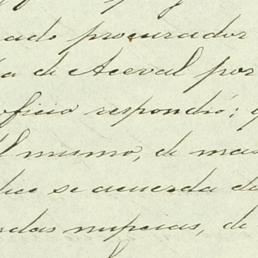 procurador
a de Aceval por
oficio respondió;
el mismo, de mas
se acuerda de
nupcias, de